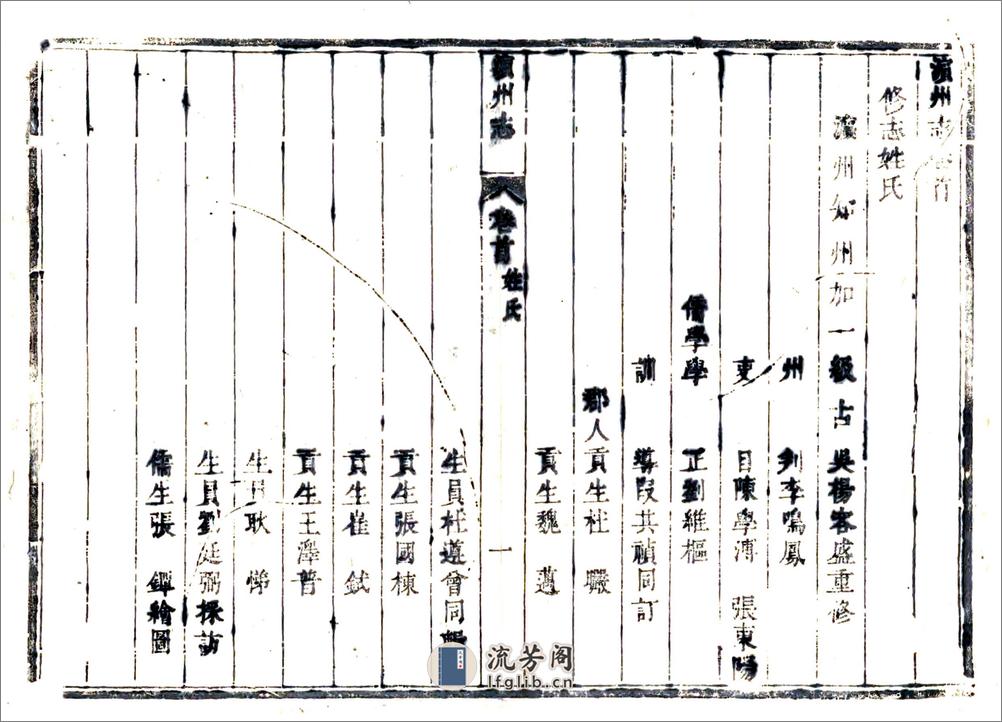 濵州志卷首
修志姓氏
濵州知州加一級古吳楊容盛重修
州判李鳴鳳
吏目陳學溥 張東陽
儒學學正劉維樞
訓導段共禎同訂
郡人貢生杜
貢生魏
濵州志 卷首 姓氏 一
生員杜遵曾同輯
貢生張國棟
貢生崔 鉽
貢生王澤普
生員耿 惇
生員劉廷弼採訪
儒生張 鐔繪圖
流芳阁
lfglib.cn